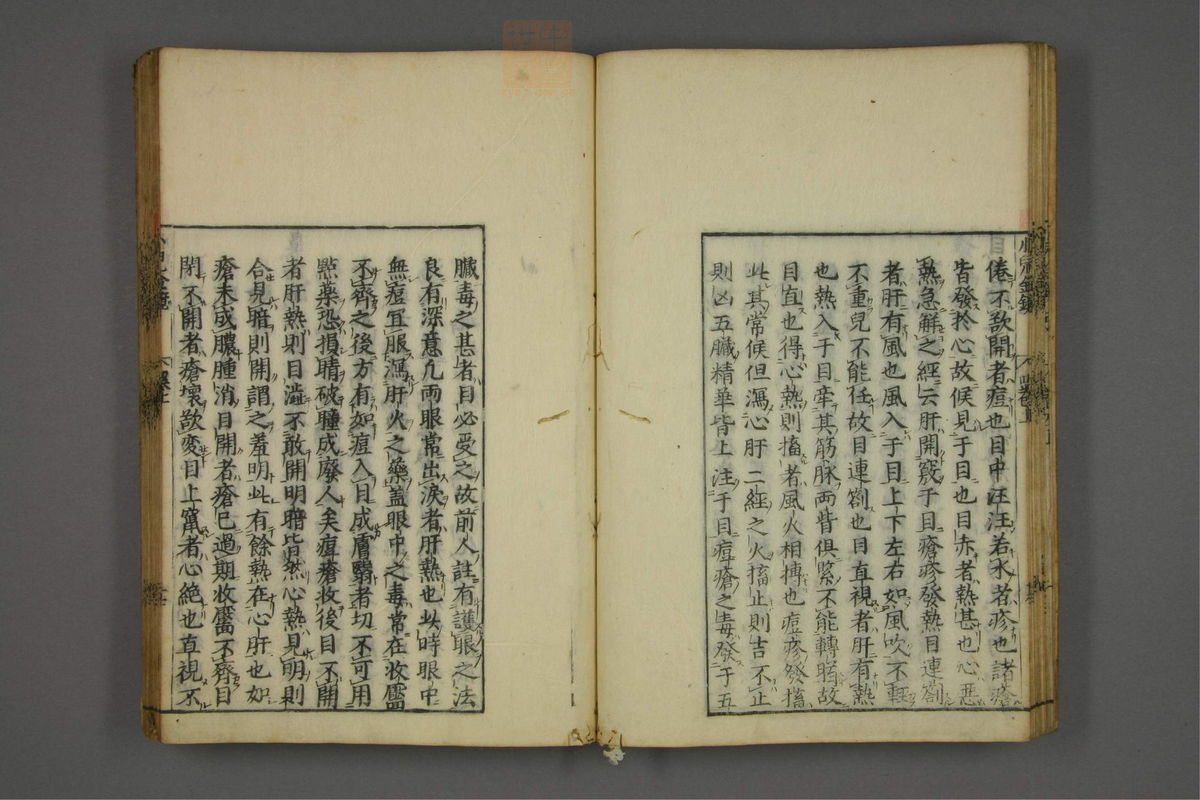 倦不欲開者痘也目中汪汪若水者疹也諸瘡
皆發於心故候見于目也目赤者熱甚也心惡
熱急解之經云肝開竅于目瘡疹發熱目連劄
者肝有風也風入于目上下左右如風吹不輕
不重兒不能任故目連劄也目直視者肝有熱
也熱入于目牽其筋脉兩眥俱緊不能轉睛故
目直也得心熱則搐者風火相搏也痘疹發搐
此其常候但瀉心肝二經之火搐止則吉不止
則凶五臟精華皆上注于目痘瘡之毒發于五
臟毒之甚者目必受之故前人註有護眼之法
良有深意凢両眼常出淚者肝熱也此時眼中
無痘冝服瀉肝火之藥蓋眼中之毒常在收靨
不齊之後方有如痘入目成膚翳者切不可用
點藥恐損睛破瞳成廢人矣痘瘡收後目不開
者肝熱則目澁不敢開明暗皆然心熱見明則
合見暗則開謂之羞明此有餘熱在心肝也如
瘡未成膿腫消目開者瘡已過期收靨不齊目
閉不開者瘡壞欲変目上竄者心絶也直視不